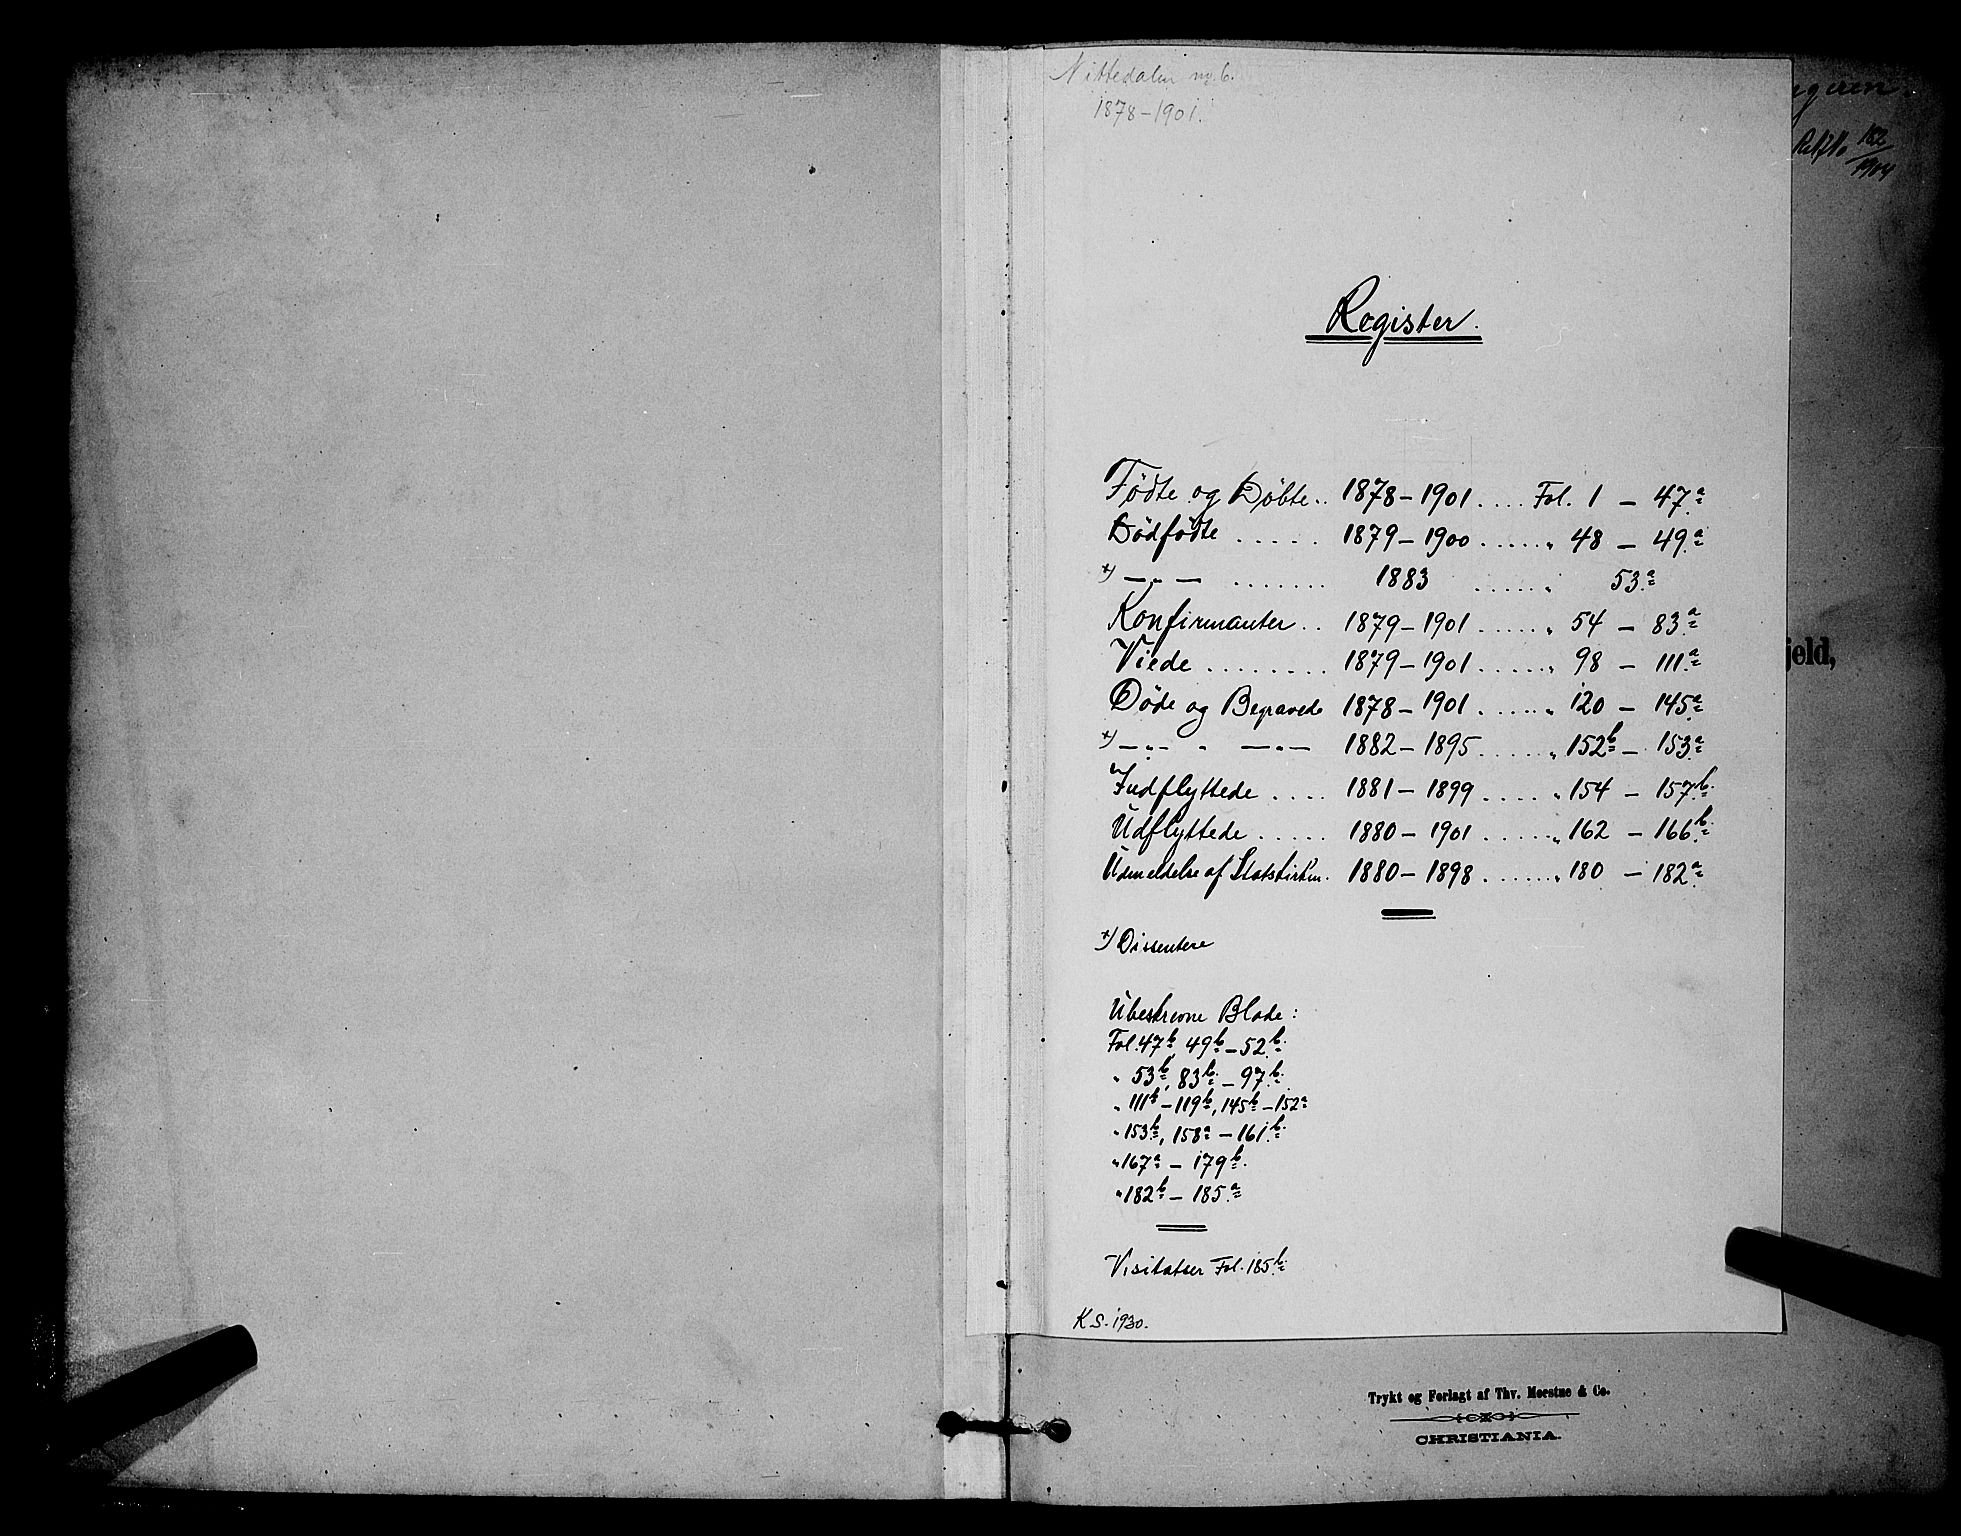 Nittedalen nr. 6.
1878-1901.
Register.
Fødte og Døbte.. 1878-1901 .... Fol. 1 - 47a
Dødfødte ..... 1879-1900 ...... " 48 - 49a
+) —"— ....... 1883 ...... " 53a
Konfirmanter .. 1879-1901 ...... " 54 - 83a
Viede ........ 1879-1901 ...... " 98 - 111a
Døde og Begravede 1878-1901 ...... " 120 - 145a
+) —"— " —"— 1882-1895 ...... " 152b - 153a
Indflyttede .... 1881-1899 ..... " 154 - 157b
Udflyttede ..... 1880-1901 ...... " 162 - 166b
Udmeldelse af Statskirken. 1880-1898 ...... " 180 - 182a
+) Dissentere
Ubeskrevne Blade:
Fol. 47b, 49b - 52b
" 53b, 83b - 97b
" 111b - 119b, 145b - 152a
" 153b, 158a - 161b
" 167a - 179b
" 182b - 185a
Visitatser Fol. 185b
K.S. 1930.
182/1904
jeld,
Trykt og Forlagt af Thv. Moestue & Co.
CHRISTIANIA.